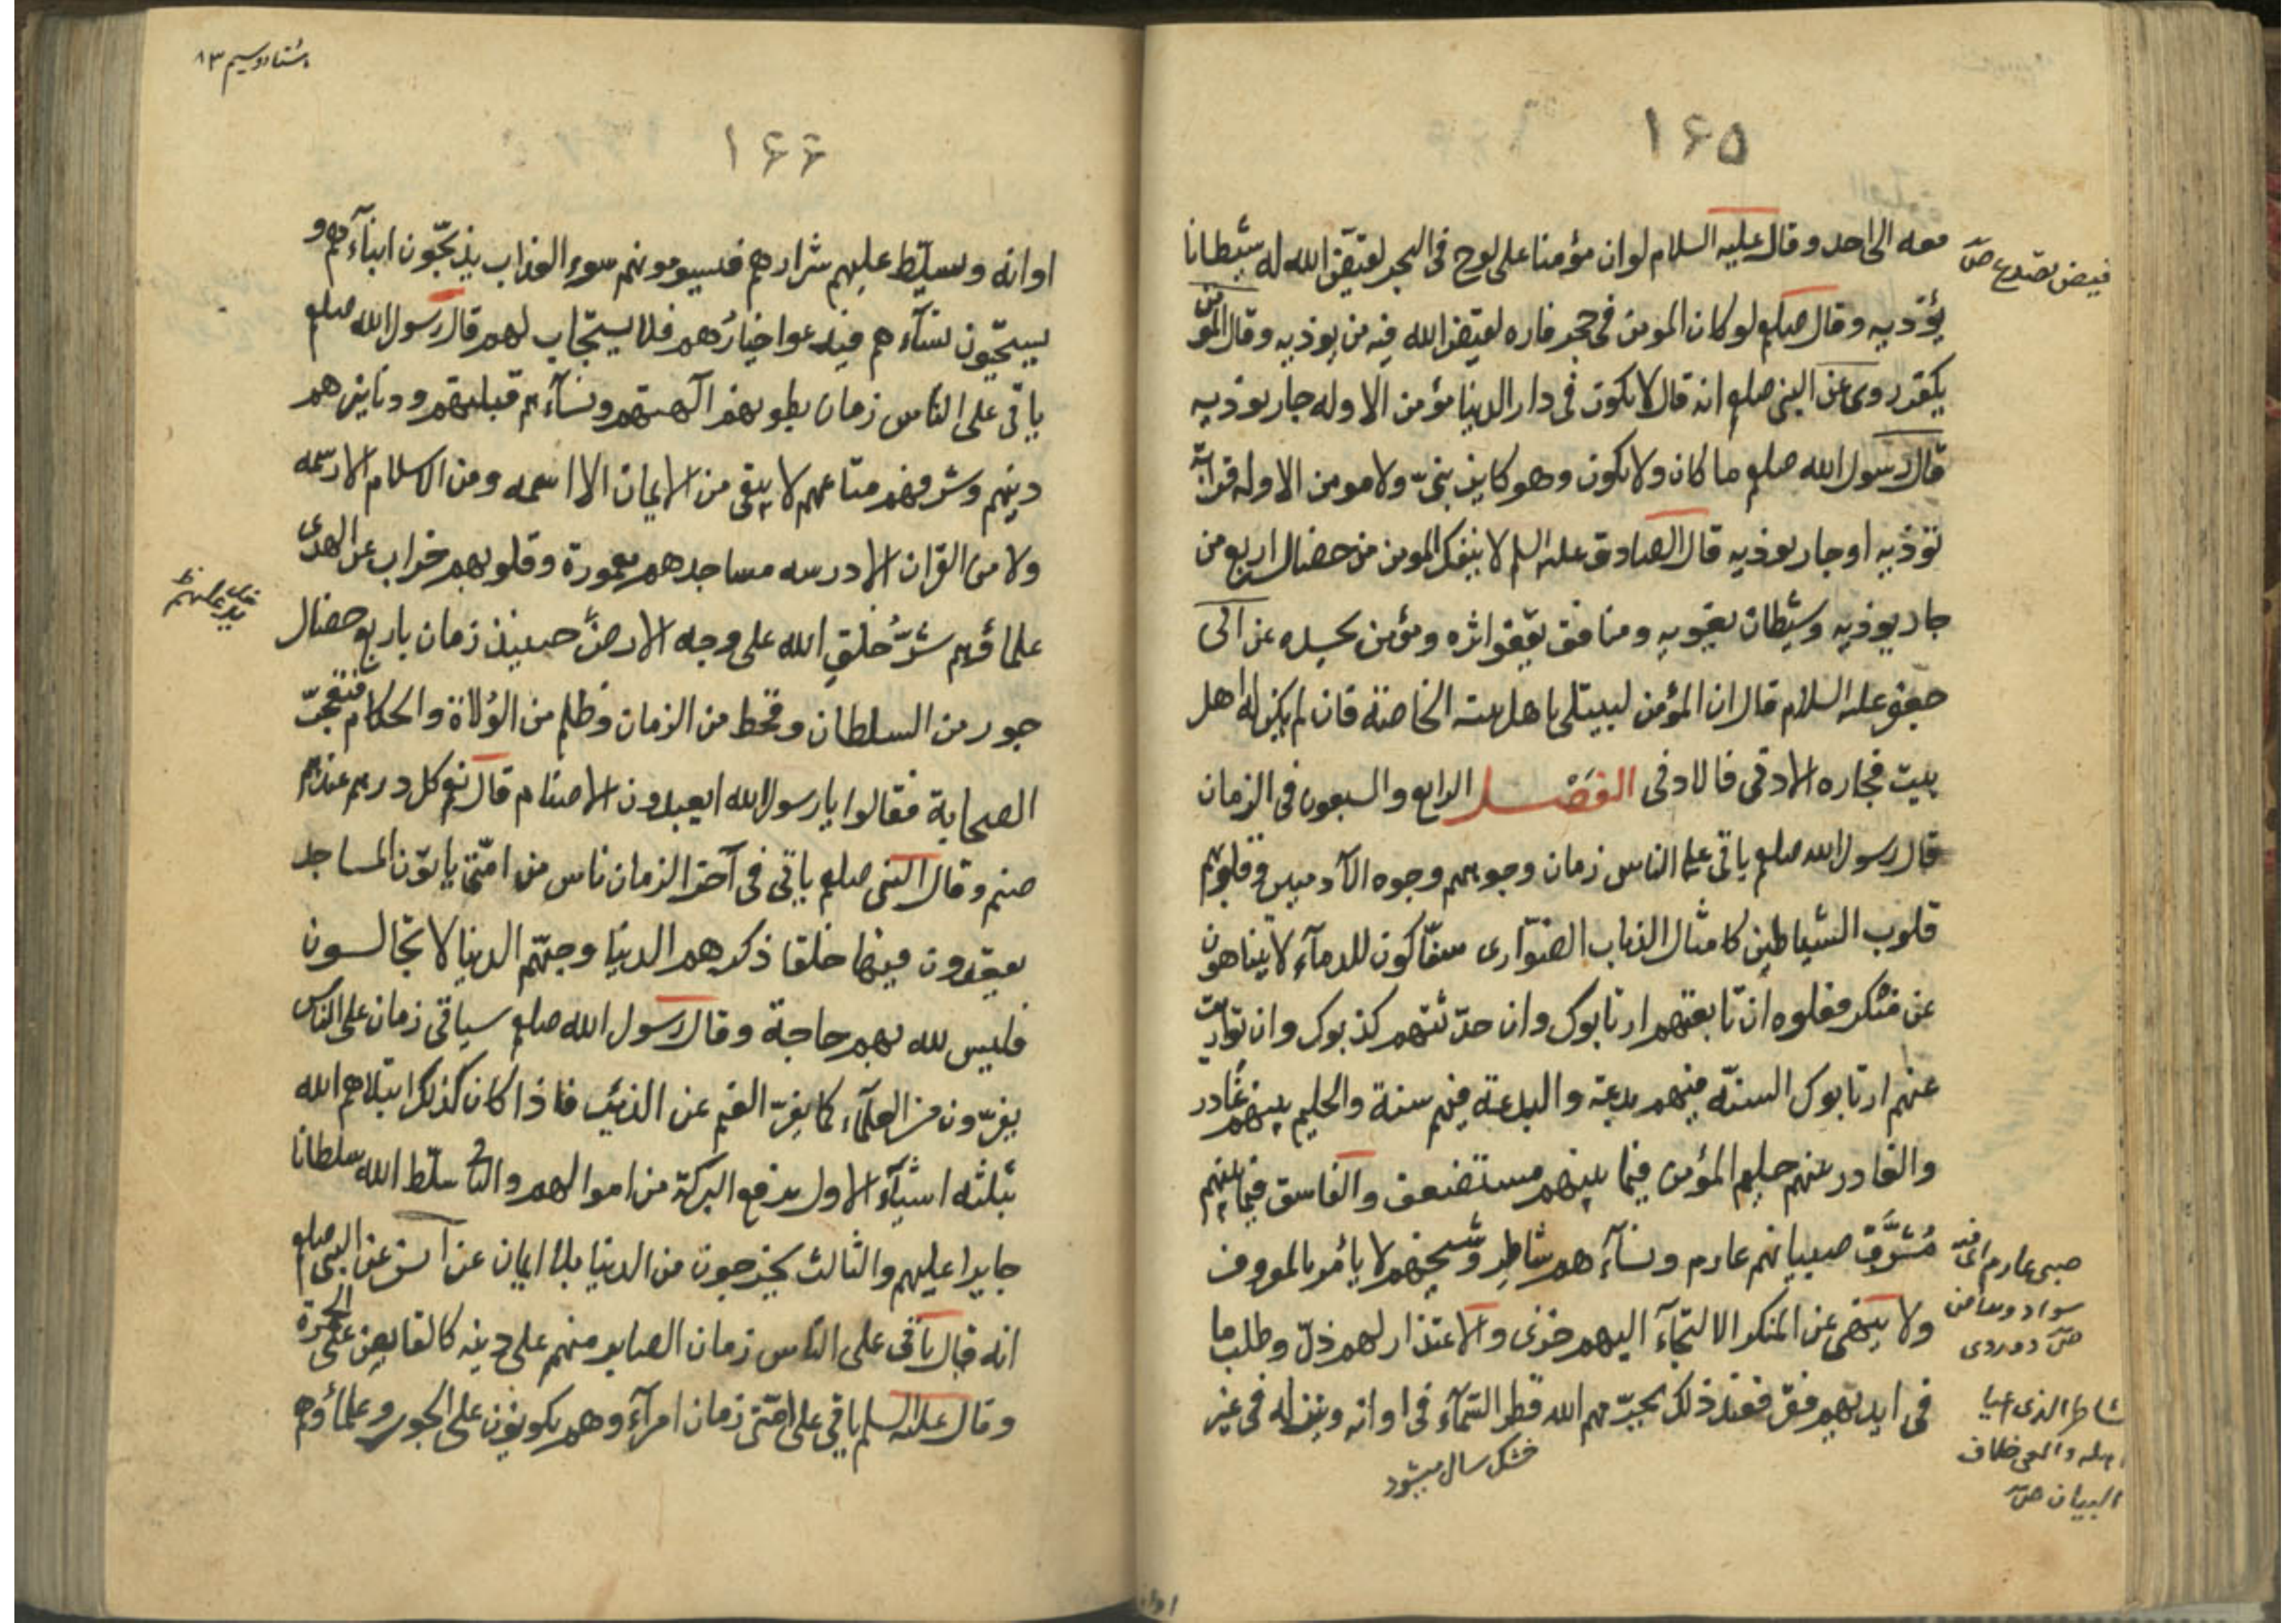 ١۶۵
معه الى احد وقال عليه السلام لو ان مؤمنا على لوح فى البحر لقيّض الله له شيطانا
يؤذيه وقال صلعم لو كان المومن فى حجر فاره لقيض الله فيه من يوذيه وقال المؤمن
يكفر روى عن النبى صلعم انه قال لا يكون فى دار الدنيا مؤمن الا وله جار يوذيه
قال رسول الله صلعم ما كان ولا يكون وهو كاين نبىّ ولا مومن الا وله قرابة
توذيه او جار يوذيه قال الصادق عليه السلم لا ينفك المومن من خصال اربع من
جار يوذيه وشيطان يغويه ومنافق يقفوا اثره ومؤمن يحسده عن ابى
جعفر عليه السلام قال ان المؤمن ليبتلى باهل بيته الخاصة فان لم يكن له اهل
بيت فجاره الادنى فالادنى الفصل الرابع والسبعون فى الزمان
قال رسول الله صلعم ياتى على الناس زمان وجوههم وجوه الآدميين وقلوبهم
قلوب الشياطين كامثال الذياب الضوارى سفّاكون للدمآء لا يتناهون
عن منكر فعلوه ان تابعتهم ارتابوك وان حدّثتهم كذبوك وان تواريت
عنهم ارتابوك السنّة فيهم بدعة والبدعة فيهم سنة والحليم بينهم غادر
والغادر بينهم حليم المؤمن فيما بينهم مستضعف والفاسق فيما بينهم
مُشرَّف صبيانهم عارم ونسآءهم شاطر وشيخهم لا يأمر بالمعروف
ولا ينهى عن المنكر الالتجآء اليهم خزى والاعتذار لهم ذلّ وطلب ما
فى ايديهم فقر فعند ذلك يحرمهم الله قطر السّمآء فى اوانه وينزله فى غير
خشك سال ميشود
صبى عارم
شاطر الذى اعيا
البيان ص
هشتاد وسيم ٨٣
١۶۶
اوانه ويسلّط عليهم شرارهم فيسومونهم سوء العذاب يذبّحون ابنآءهم و
يستحيون نسآءهم فيدعوا خيارُهم فلا يستجاب لهم قال رسول الله صلعم
ياتى على الناس زمان بطونهم آلهتهم ونسآءهم قبلتهم ودنانيرهم
دينهم وشرفهم متاعهم لا يبقى من الايمان الا اسمه ومن الاسلام الا رسمه
ولا من القران الا درسه مساجدهم معمورة وقلوبهم خراب عن الهدى
علماؤهم شرّ خلق الله على وجه الارض حينئذ زمان باربع خصال
جور من السلطان وقحط من الزمان وظلم من الوُلاة والحكام فتعجّب
الصحابة فقالوا يا رسول الله ايعبدون الاصنام قال نعم كل درهم عندهم
صنم وقال النبى صلعم ياتى فى آخر الزمان ناس من امّتى ياتون المساجد
يعقدون فيها حلقا ذكرهم الدنيا وحبّهم الدنيا لا تجالسون
فليس لله بهم حاجة وقال رسول الله صلعم سياتى زمان على الناس
يفرّون من العلمآء كما يفرّ الغنم عن الذئب فاذا كان كذلك ابتلاهم الله
بثلثه اشيآء الاول يرفع البركة من اموالهم والثانى سلّط الله سلطانا
جايرا عليهم والثالث يخرجون من الدنيا بلا ايمان عن انس عن النبى صلعم
انه قال ياتى على الناس زمان الصابر منهم على دينه كالقابض على الجمرة
وقال عليه السلم ياتى على امّتى زمان امرآءوهم يكونون على الجور وعلمآؤهم